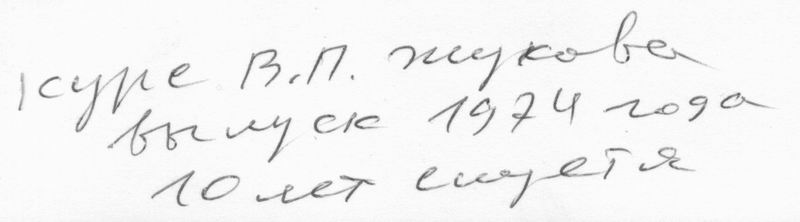 курс В.П. Жукова
выпуск 1974 года
10 лет спустя